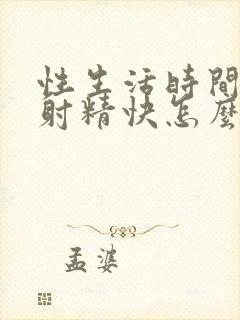 性生活時間
射精快怎麼
孟婆